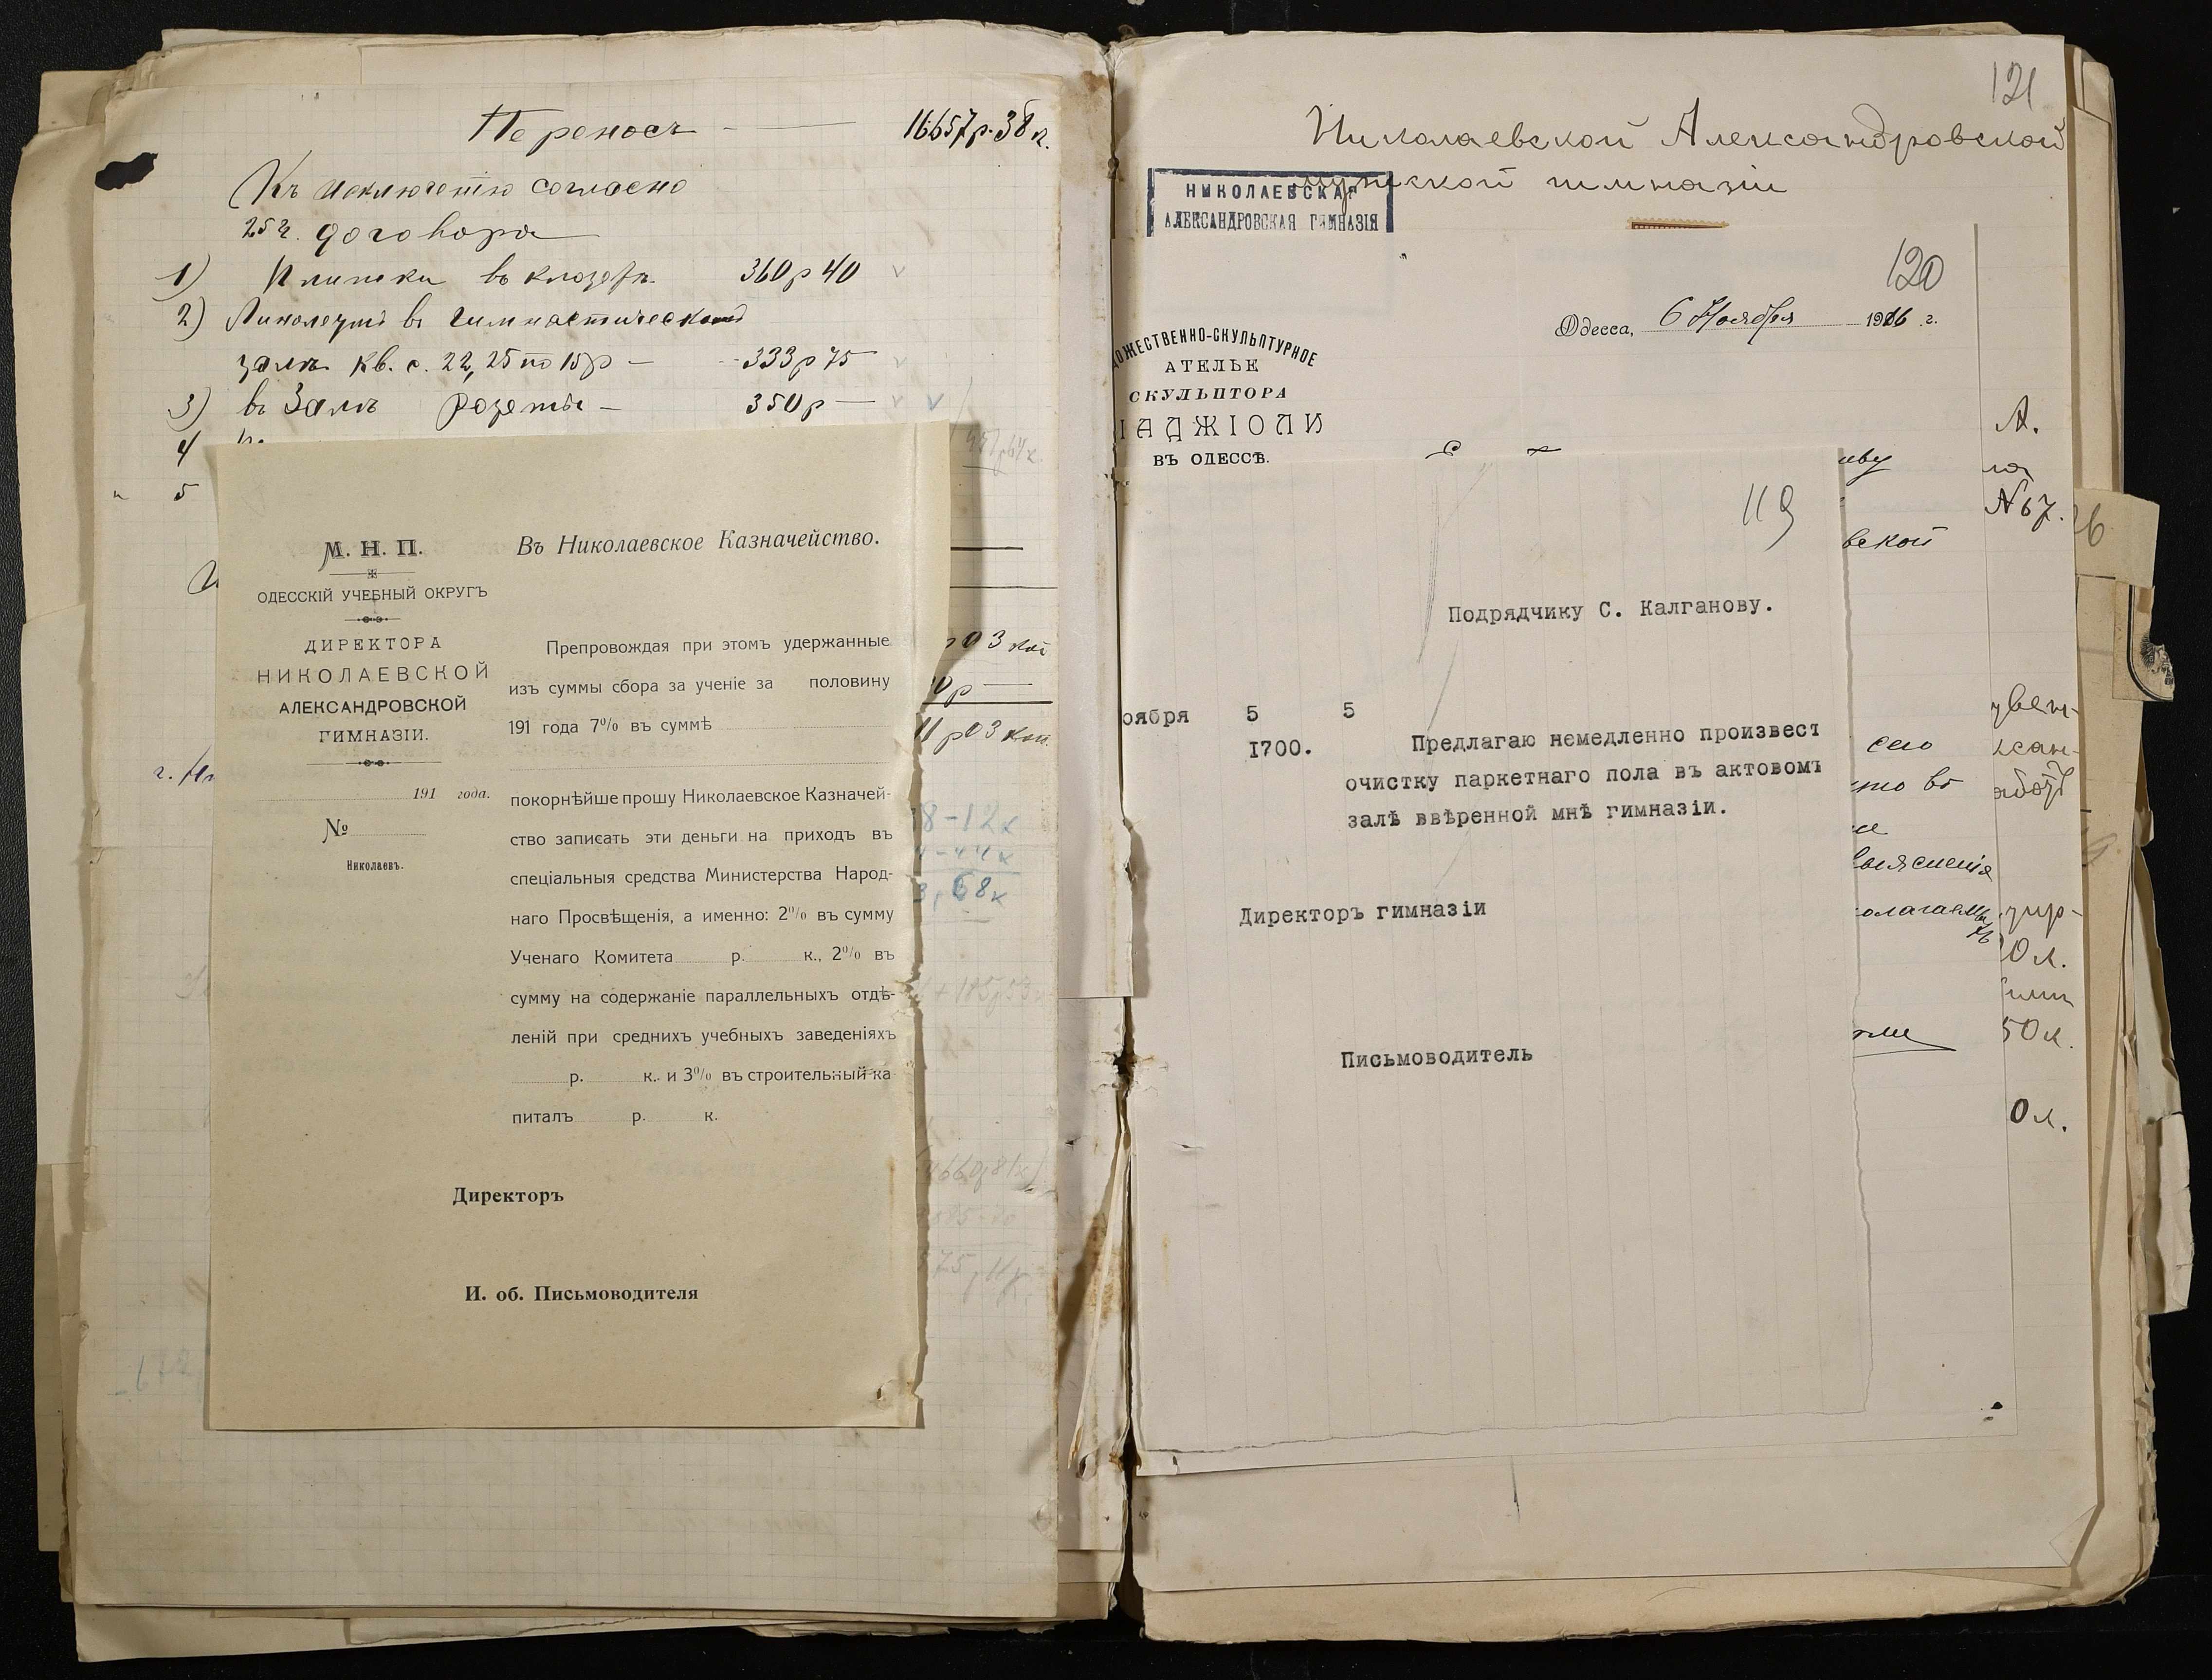 Переносъ — 16657 р. 38 к.
Къ исключенію согласно
договора
1) Плитки въ клозетъ 360 р 40
2) Линолеумъ въ гимнастическомъ
залѣ кв. с. 22,25 по 15 р — 333 р 75
3) въ Залѣ розеты — 350 р —
4
5
03 коп
р —
11 р 03 коп.
М. Н. П.
ОДЕССКІЙ УЧЕБНЫЙ ОКРУГЪ
ДИРЕКТОРА
НИКОЛАЕВСКОЙ
АЛЕКСАНДРОВСКОЙ
ГИМНАЗІИ.
191 года.
№
Николаевъ.
Въ Николаевское Казначейство.
Препровождая при этомъ удержанные
изъ суммы сбора за ученіе за половину
191 года 7% въ суммѣ
покорнѣйше прошу Николаевское Казначей-
ство записать эти деньги на приходъ въ
спеціальныя средства Министерства Народ-
наго Просвѣщенія, а именно: 2% въ сумму
Ученаго Комитета р. к., 2% въ
сумму на содержаніе параллельныхъ отдѣ-
леній при среднихъ учебныхъ заведеніяхъ
р. к. и 3% въ строительный ка
питалъ р. к.
Директоръ
И. об. Письмоводителя
121
Николаевской Александровской
мужской гимназіи
НИКОЛАЕВСКАЯ
АЛЕКСАНДРОВСКАЯ ГИМНАЗІЯ
120
Одесса, 6 Ноября 1916 г.
ОЖЕСТВЕННО-СКУЛЬПТУРНОЕ
АТЕЛЬЕ
СКУЛЬПТОРА
ІАДЖІОЛИ
ВЪ ОДЕССѢ.
А.
№ 67.
26
вской
119
Подрядчику С. Калганову.
оября 5 5
1700.
Предлагаю немедленно произвест
очистку паркетнаго пола въ актовомъ
залѣ ввѣренной мнѣ гимназіи.
Директоръ гимназіи
Письмоводитель
сею
ксан-
выясненія
0 к.
50 к.
0 к.